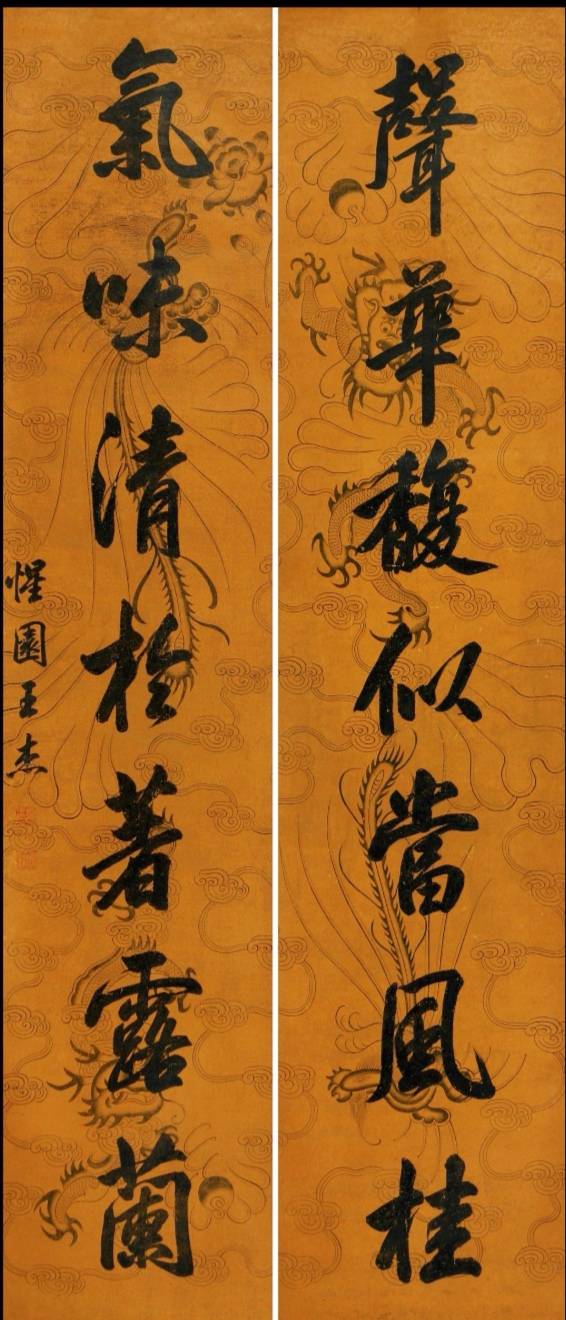 聲華馥似當風桂
氣味清於著露蘭
惺園王杰